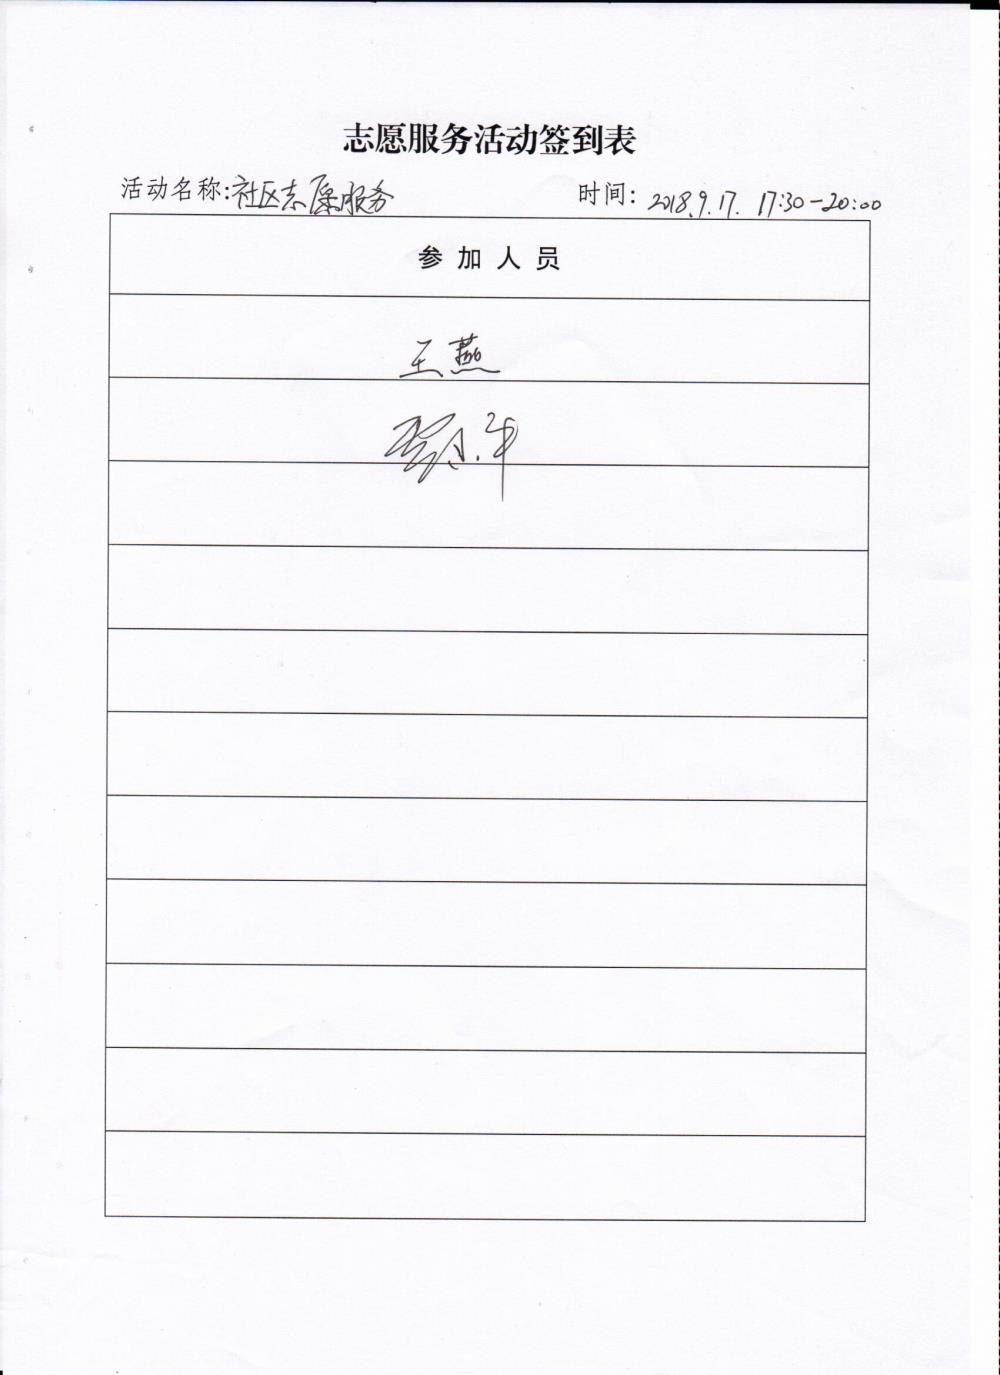 志愿服务活动签到表
活动名称:社区志愿服务 时间: 2018.9.17. 17:30-20:00
参加人员
王燕